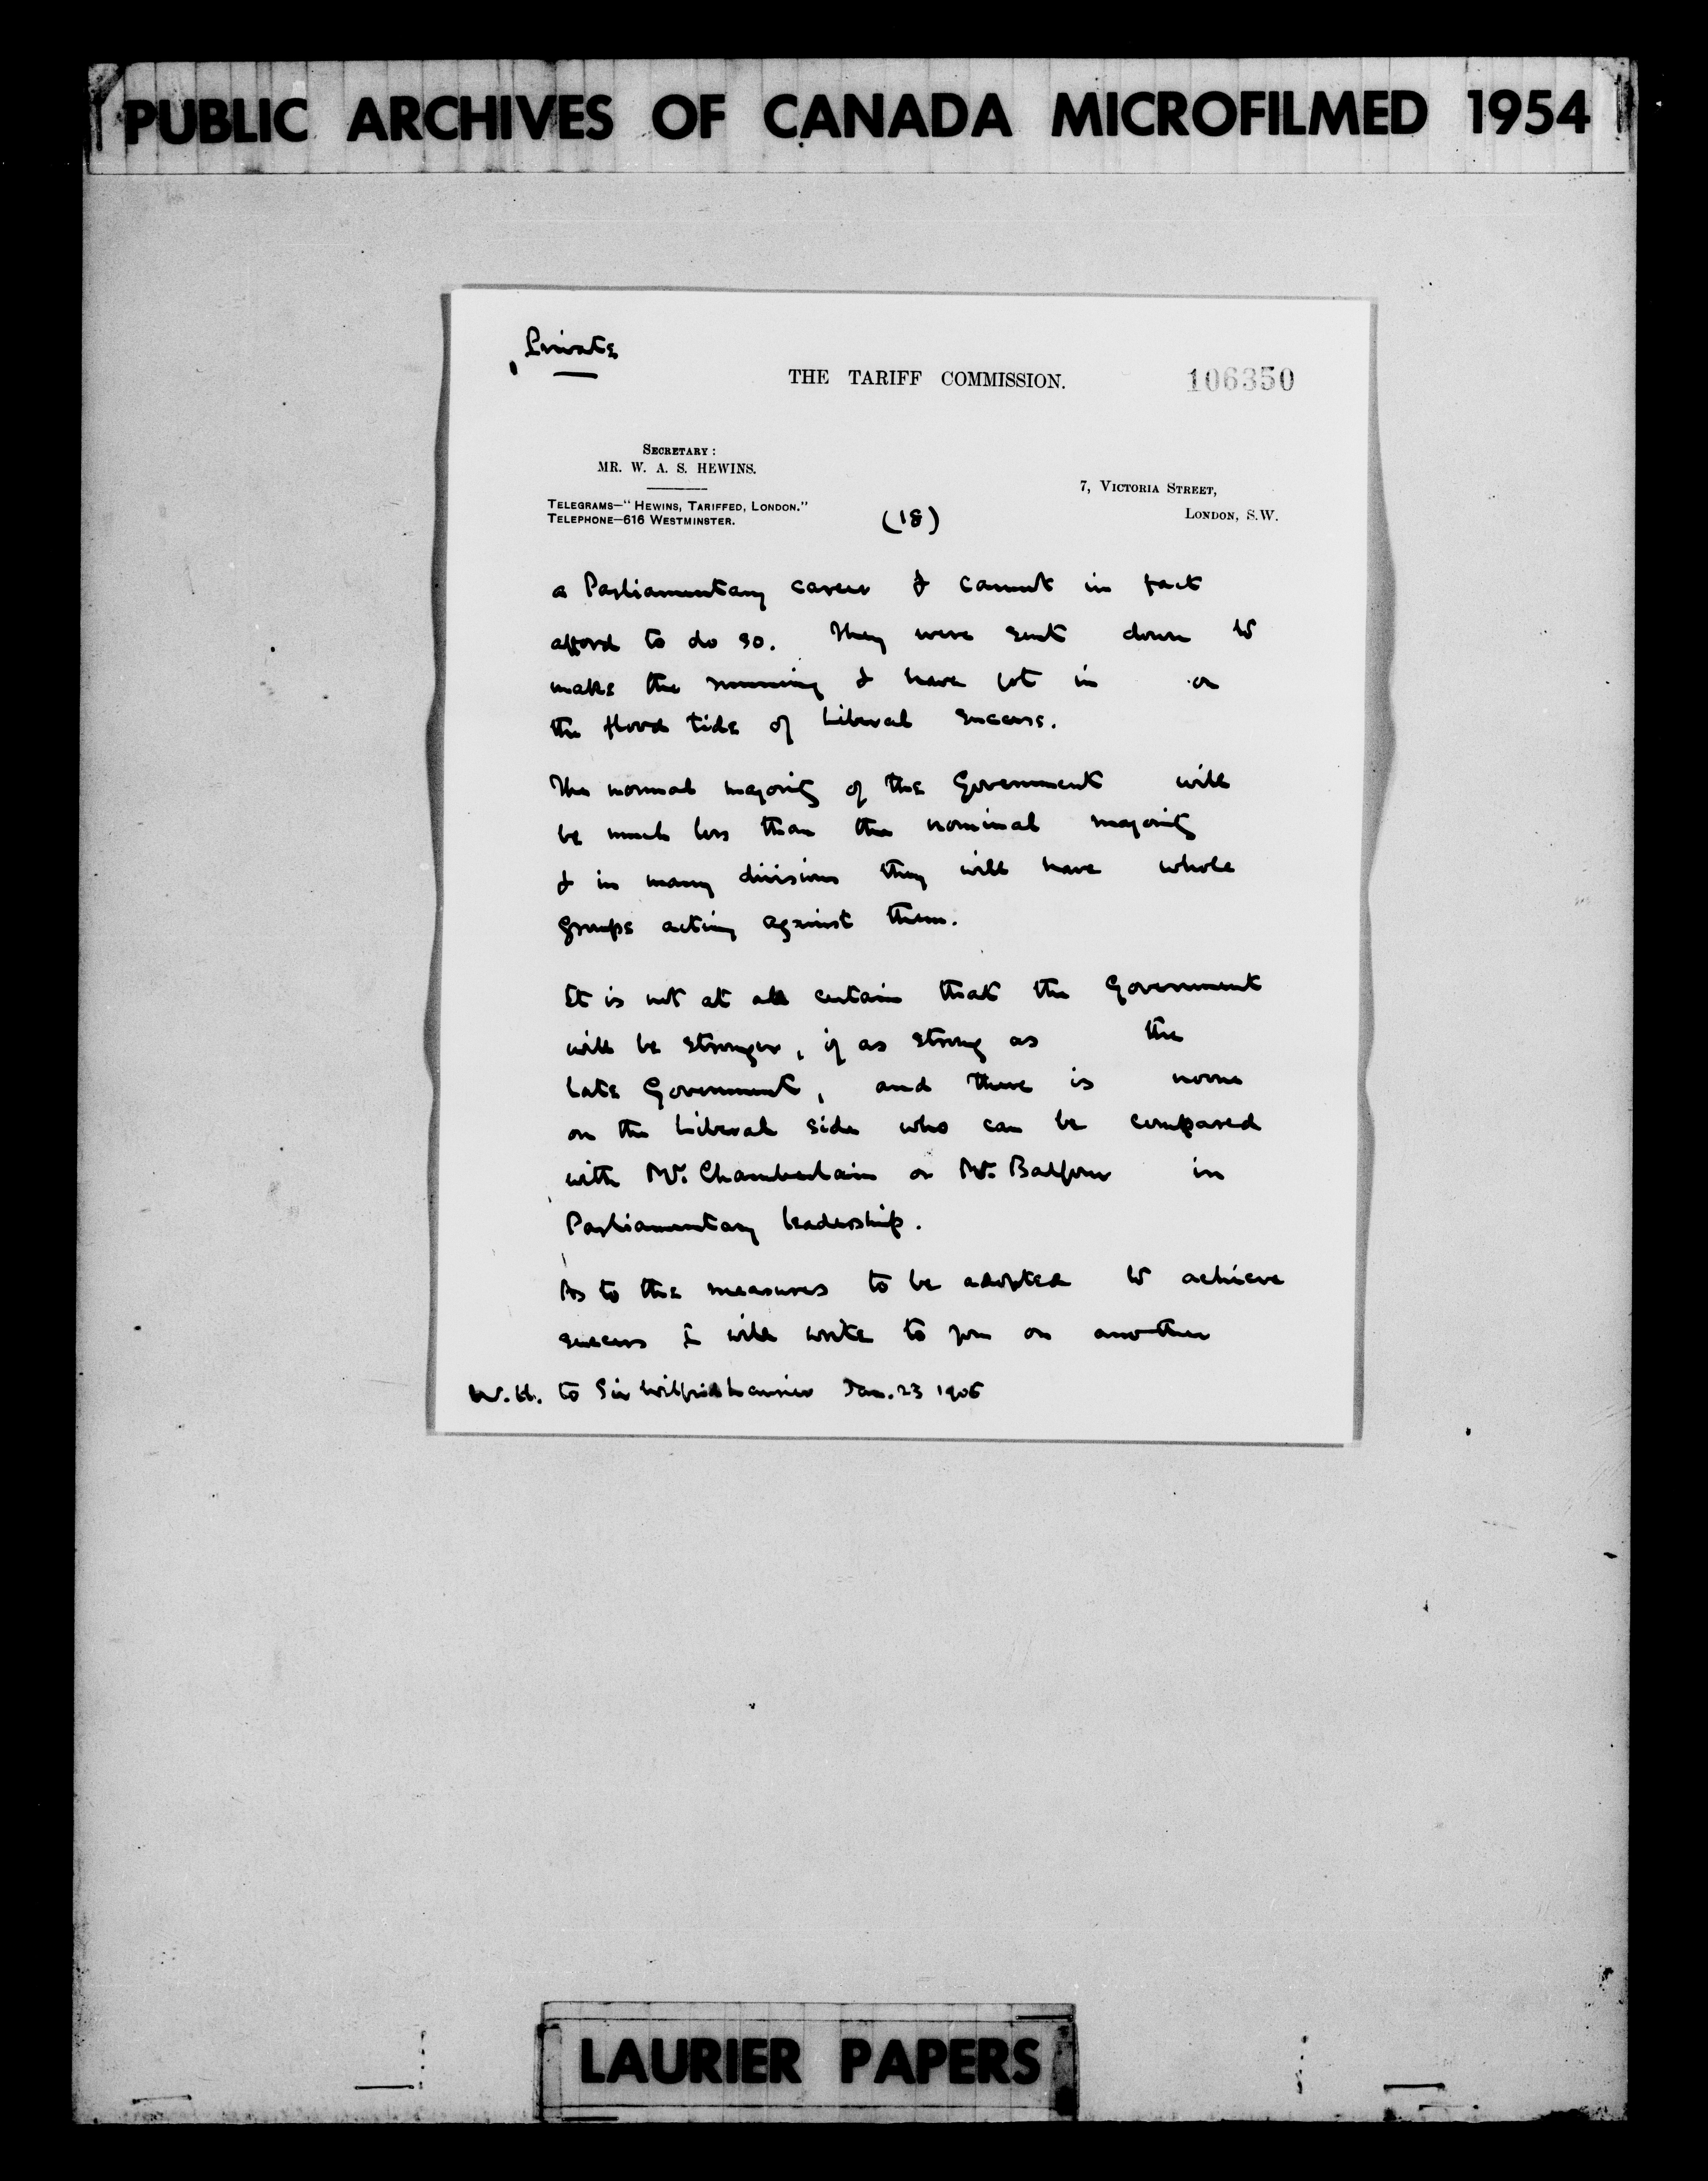 PUBLIC ARCHIVES OF CANADA MICROFILMED 1954
Private
THE TARIFF COMMISSION.
106350
SECRETARY:
MR. W. A. S. HEWINS.
TELEGRAMS—"HEWINS, TARIFFED, LONDON."
TELEPHONE—616 WESTMINSTER.
7, VICTORIA STREET,
LONDON, S.W.
(18)
a Parliamentary career & cannot in fact
afford to do so. They were sent down to
make the running & have got in on
the flood tide of Liberal success.
The normal majority of the Government will
be much less than the nominal majority
& in many divisions they will have whole
groups acting against them.
It is not at all certain that the Government
will be stronger, if as strong as the
late Government, and there is none
on the Liberal side who can be compared
with Mr. Chamberlain or Mr. Balfour in
Parliamentary leadership.
As to the measures to be adopted to achieve
success I will write to you on another
W.H. to Sir Wilfrid Laurier Jan. 23 1906
LAURIER PAPERS